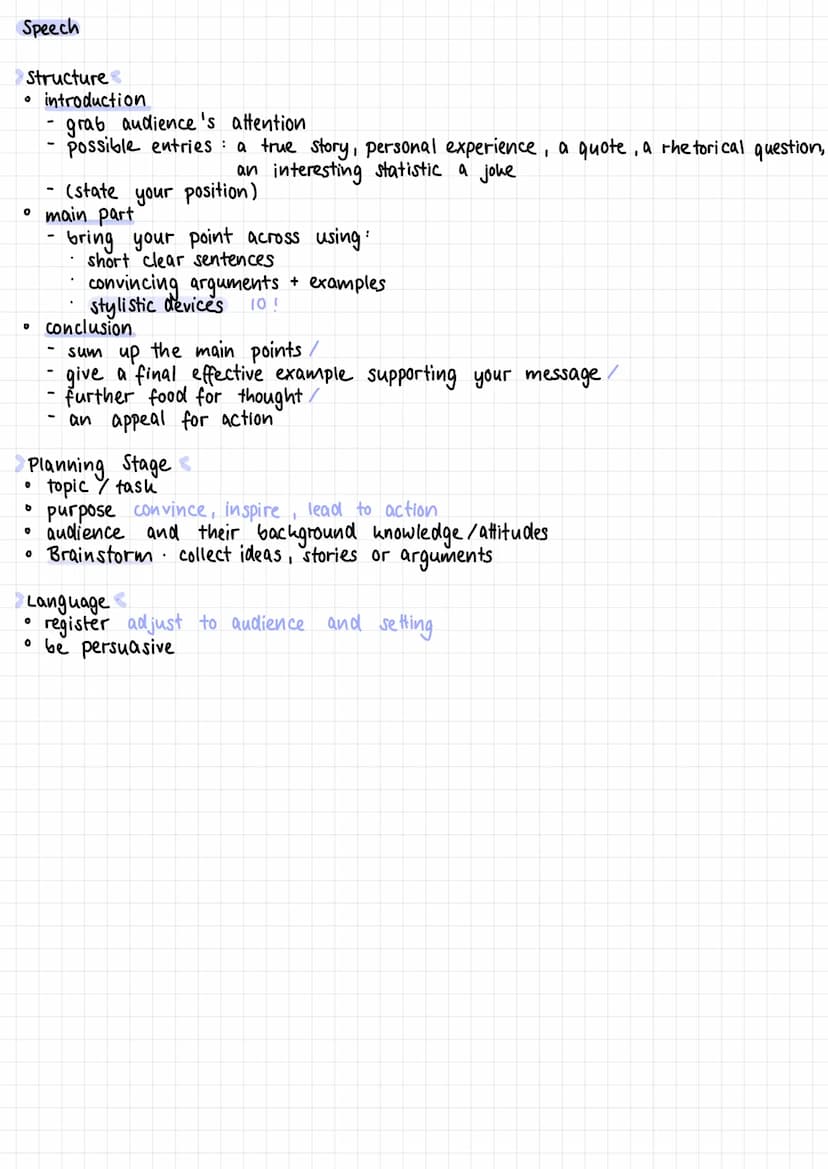 Speech
Structure
° introduction
- grab audience's attention
- possible entries : a true story, personal experience, a quote, a rhetorical question,
an interesting statistic a joke
- (state your position)
° main part
- bring your point across using:
· short clear sentences
· convincing arguments + examples
· stylistic devices 10!
° conclusion
- sum up the main points /
- give a final effective example supporting your message /
- further food for thought /
- an appeal for action
Planning Stage
° topic / task
° purpose convince, inspire, lead to action
° audience and their background knowledge/attitudes
° Brainstorm · collect ideas, stories or arguments
Language
° register adjust to audience and setting
° be persuasive